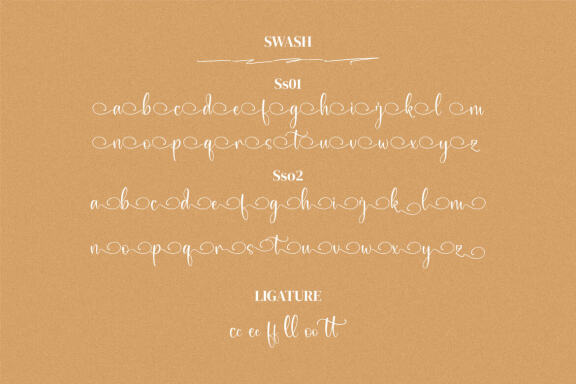 SWASH
Ss01
a b c d e f g h i j k l m
n o p q r s t u v w x y z
Ss02
a b c d e f g h i j k l m
n o p q r s t u v w x y z
LIGATURE
cc ee ff ll oo tt